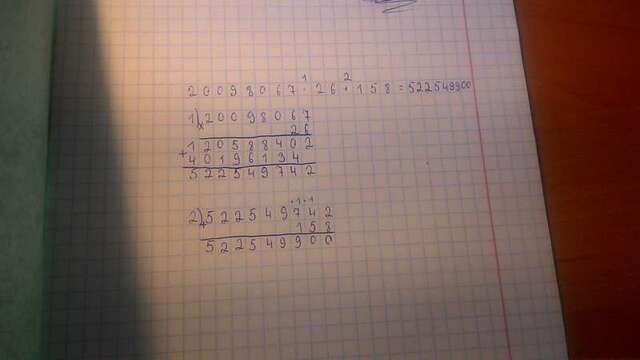 1 2
20098067 · 26 + 158 = 522549900
1) 20098067
× 26
120588402
+ 40196134
522549742
· 1 · 1
2) 522549742
+ 158
522549900